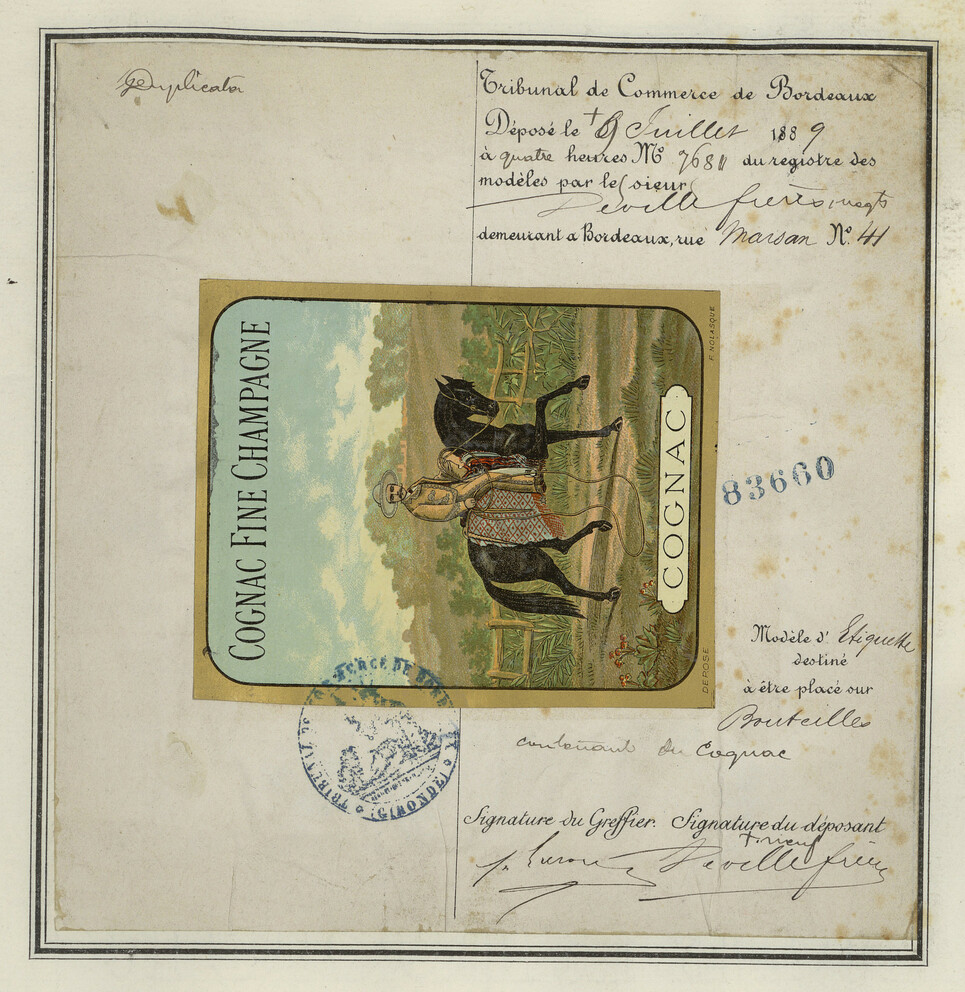 Duplicata
Tribunal de Commerce de Bordeaux
Déposé le 9 Juillet 1889
à quatre heures No. 7681 du registre des
modèles par le sieur
Deville frères, negts
demeurant a Bordeaux, rue Marsan No. 41
COGNAC FINE CHAMPAGNE
COGNAC
F. NOLASQUE
DEPOSÉ
83660
Modèle d' Etiquette
destiné
à être placé sur
Bouteilles
contenant du Cognac
TRIBUNAL DE COMMERCE DE BORDEAUX
(GIRONDE)
Signature du Greffier. Signature du déposant
Deville frères